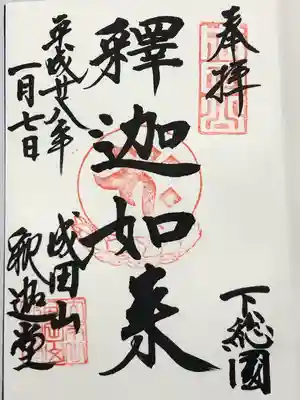 奉拝
下総國
釋迦如来
平成廿八年
一月七日
成田山
釈迦堂